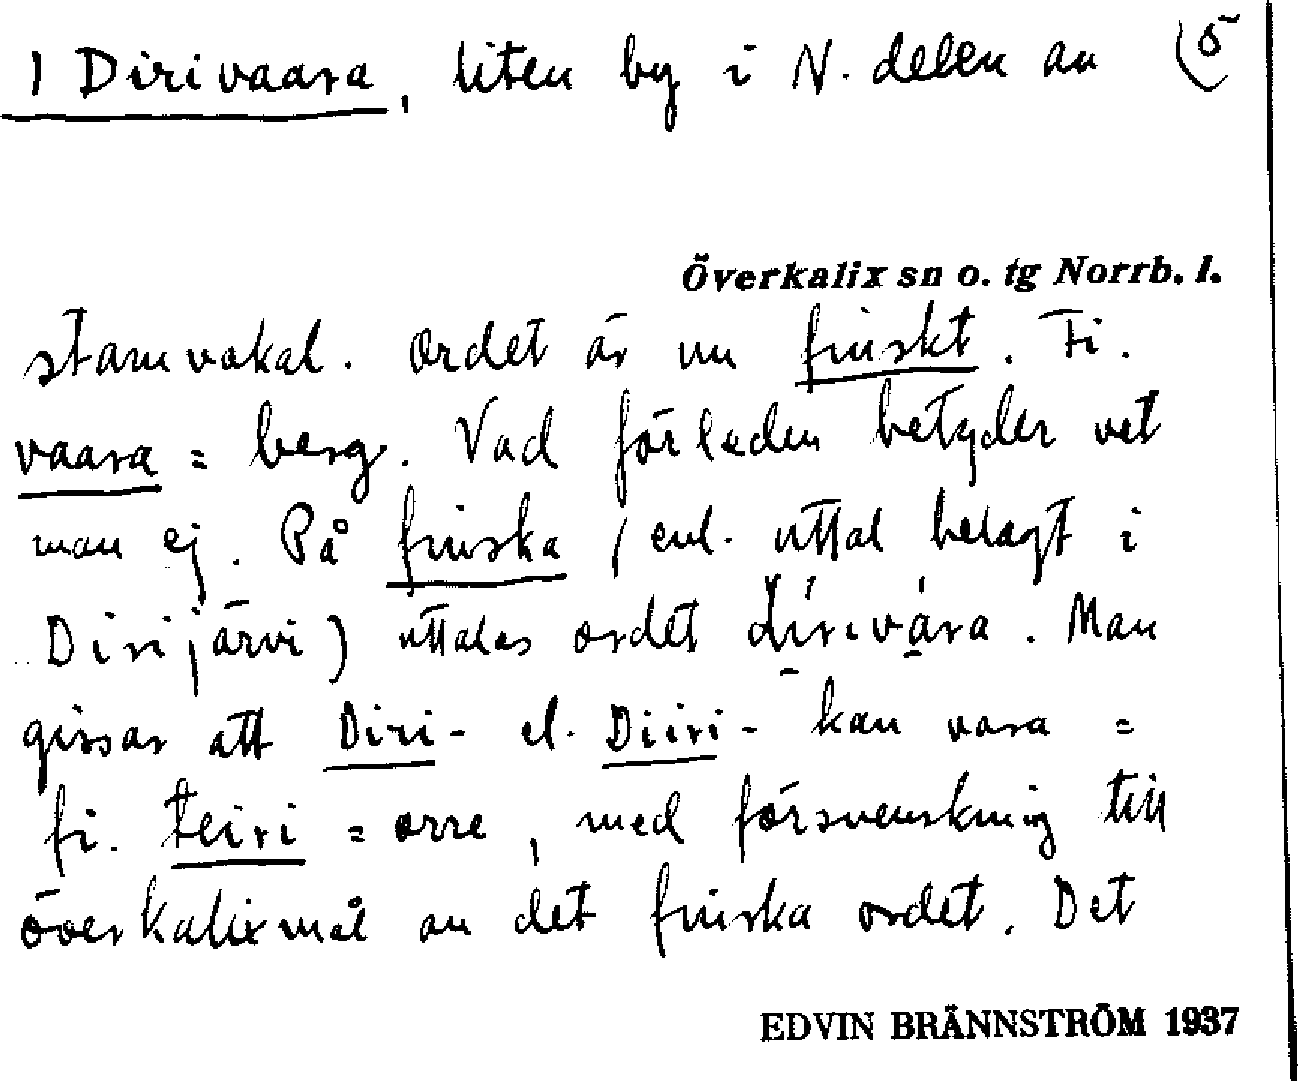 1 Dirivaara, liten by i N. delen av (5
Överkalix sn o. tg Norrb. l.
stamvokal. Ordet är nu finskt. Fi.
vaara = berg. Vad förleden betyder vet
man ej. På finska (enl. uttal belagt i
Dirijärvi) uttalas ordet dírivára. Man
gissar att Diri- el. Diiri- kan vara =
fi. teiri = orre, med försvenskning till
överkalixmål av det finska ordet. Det
EDVIN BRÄNNSTRÖM 1937